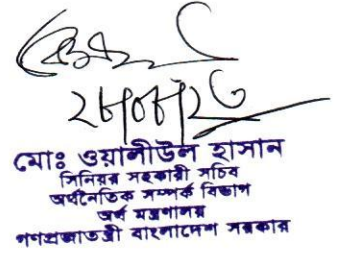 ২৮/০৮/২৩
মোঃ ওয়ালীউল হাসান
সিনিয়র সহকারী সচিব
অর্থনৈতিক সম্পর্ক বিভাগ
অর্থ মন্ত্রণালয়
গণপ্রজাতন্ত্রী বাংলাদেশ সরকার